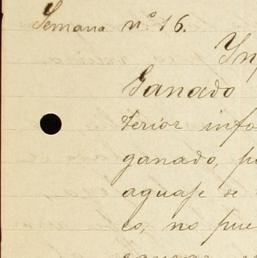 Semana nº 16.
In
Ganado
terior info
ganado, p
aguaje se
co, no pue